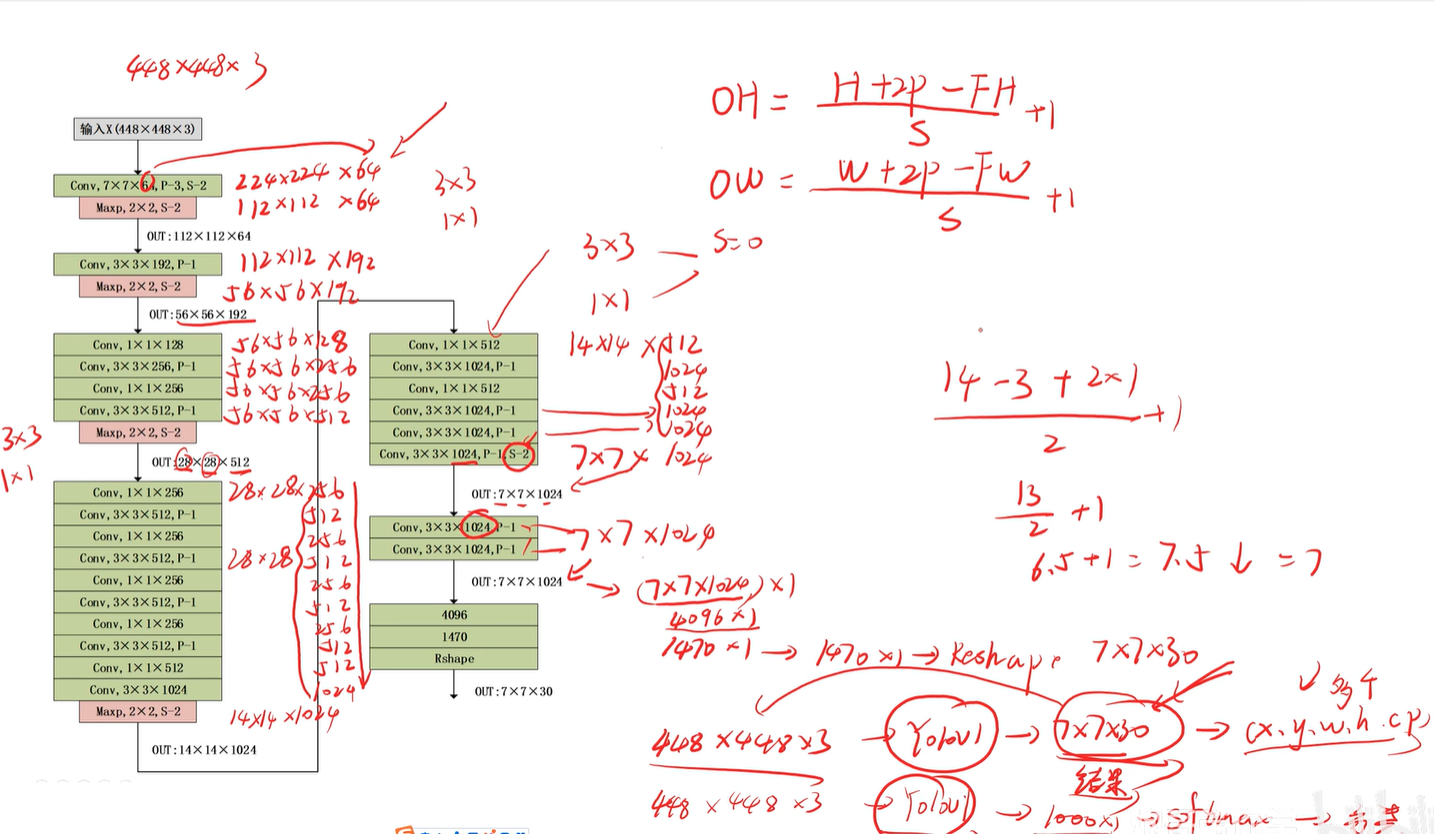 448×448×3
输入X(448×448×3)
Conv, 7×7×64, P-3, S-2
224×224×64
Maxp, 2×2, S-2
112×112×64
OUT:112×112×64
Conv, 3×3×192, P-1
112×112×192
Maxp, 2×2, S-2
56×56×192
OUT:56×56×192
Conv, 1×1×128
56×56×128
Conv, 3×3×256, P-1
56×56×256
Conv, 1×1×256
56×56×256
Conv, 3×3×512, P-1
56×56×512
Maxp, 2×2, S-2
3×3
1×1
OUT:28×28×512
Conv, 1×1×256
28×28×256
Conv, 3×3×512, P-1
512
Conv, 1×1×256
256
Conv, 3×3×512, P-1
28×28
512
Conv, 1×1×256
256
Conv, 3×3×512, P-1
512
Conv, 1×1×256
256
Conv, 3×3×512, P-1
512
Conv, 1×1×512
512
Conv, 3×3×1024
1024
Maxp, 2×2, S-2
14×14×1024
OUT:14×14×1024
3×3
1×1
3×3
1×1
S=0
Conv, 1×1×512
14×14×512
Conv, 3×3×1024, P-1
1024
Conv, 1×1×512
512
Conv, 3×3×1024, P-1
1024
Conv, 3×3×1024, P-1
1024
Conv, 3×3×1024, P-1, S-2
7×7×1024
OUT:7×7×1024
Conv, 3×3×1024, P-1
Conv, 3×3×1024, P-1
7×7×1024
OUT:7×7×1024
(7×7×1024)×1
4096
4096×1
1470
1470×1→1470×1→Reshape 7×7×30
Rshape
OUT:7×7×30
OH = H+2P-FH
S
+1
OW = W+2P-FW
S
+1
14-3+2×1
2
+1
13
2
+1
6.5+1=7.5↓=7
448×448×3→Yolov1→7×7×30→(x.y.w.h.c.p)
结果
448×448×3→Yolov1→1000×1→softmax→